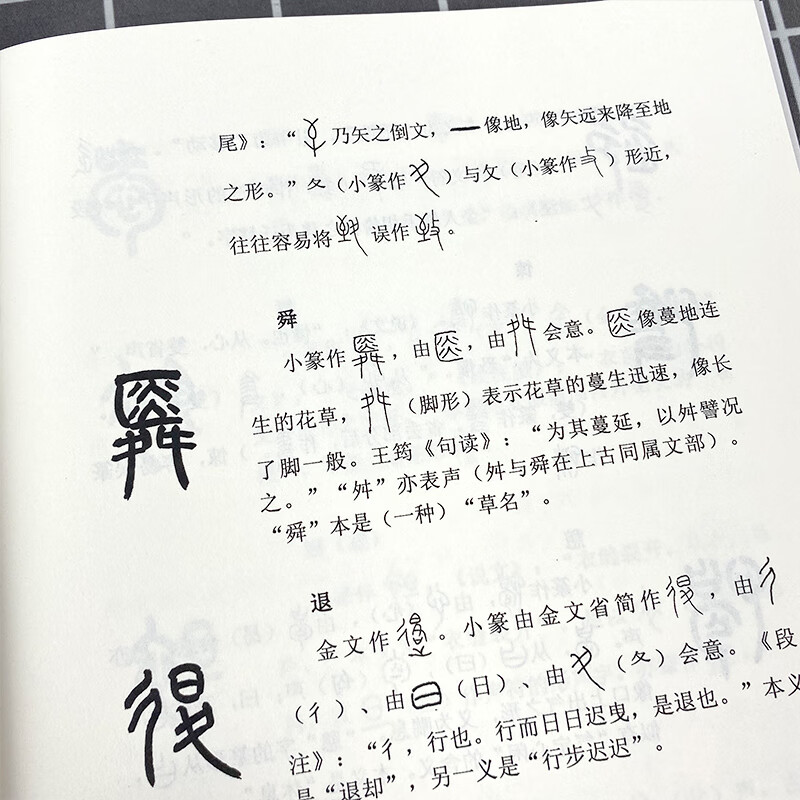 尾》：“乃矢之倒文，一像地，像矢远来降至地
之形。”夂（小篆作）与攵（小篆作）形近，
往往容易将误作。
舜
小篆作，由，由会意。像蔓地连
生的花草，（脚形）表示花草的蔓生迅速，像长
了脚一般。王筠《句读》：“为其蔓延，以舛譬况
之。”“舛”亦表声（舛与舜在上古同属文部）。
“舜”本是（一种）“草名”。
退
金文作。小篆由金文省简作，由
（彳）、由（日）、由（夂）会意。《段
注》：“彳，行也。行而日日迟曳，是退也。”本义
是“退却”，另一义是“行步迟迟”。